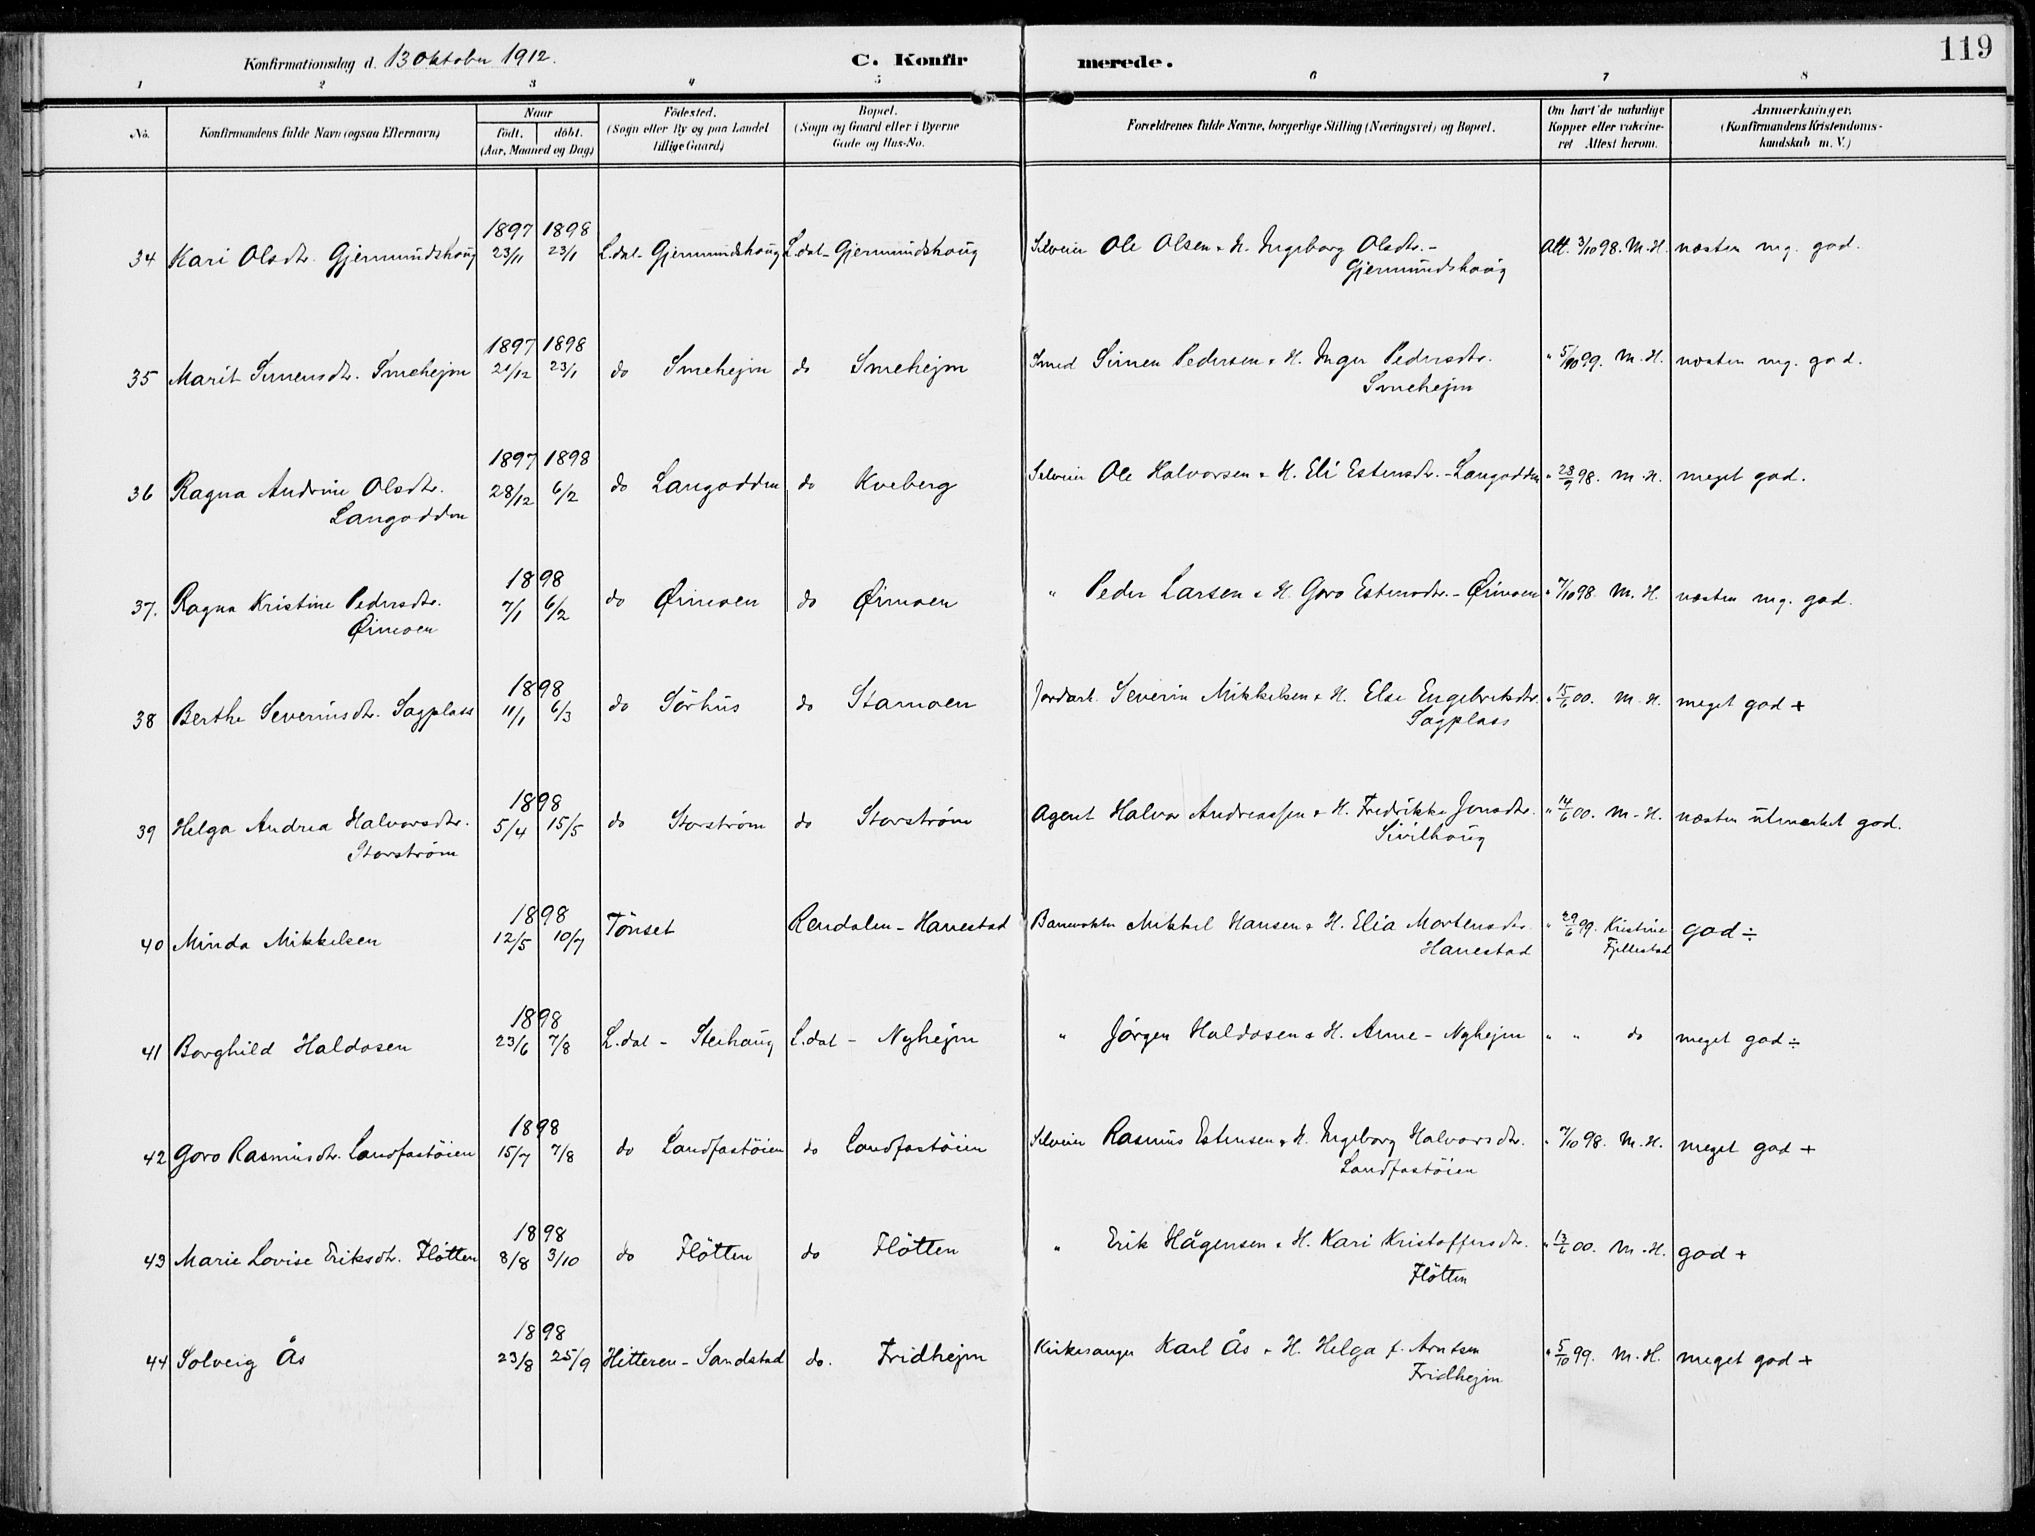 119
Konfirmationsdag d. 13 Oktober 1912. C. Konfirmerede.
1 2 3 4 5 6 7 8
No. Konfirmandens fulde Navn (ogsaa Efternavn) Naar født. døbt. (Aar, Maaned og Dag) Fødested. (Sogn eller By og paa Landet tillige Gaard) Bopæl. (Sogn og Gaard eller i Byerne Gade og Hus-No. Forældrenes fulde Navne, borgerlige Stilling (Næringsvei) og Bopæl. Om havt de naturlige Kopper eller vakcineret Attest herom. Anmærkninger. (Konfirmandens Kristendomskundskab m. V.)
1897 1898
34 Kari Olsdtr. Gjermundshoug 23/11 23/1 L.dal - Gjermundshoug L.dal - Gjermundshoug Selveier Ole Olsen & H. Ingeborg Olsdtr. - Att. 3/10 98. M. H. næsten mg. god.
Gjermundshoug
1897 1898
35 Marit Simensdtr. Smehejm 21/12 23/1 do Smehejm do Smehejm Smed Simen Pedersen & H. Inger Pedersdtr. " 5/10 99. M. H. næsten mg. god.
Smehejm
1897 1898
36 Ragna Andrine Olsdtr. 28/12 6/2 do Langodden do Kveberg Selveier Ole Halvorsen & H. Eli Estensdtr. - Langodden " 28/9 98. M. H. meget god.
Langodden
1898
37. Ragna Kristine Pedersdtr. 7/1 6/2 do Ørimoen do Ørimoen " Peder Larsen & H. Goro Estensdtr. - Ørimoen " 7/10 98. M. H. næsten mg. god.
Ørimoen
1898
38 Berthe Severinsdtr. Sagplass 11/1 6/3 do Sörhus do Stamoen Jordarb. Severin Mikkelsen & H. Else Engebretsdtr. " 15/6 00. M. H. meget god +
Sagplass
1898
39 Helga Andrea Halvorsdtr. 5/4 15/5 do Storstrøm do Storstrøm Agent Halvor Andreassen & H. Fredrikke Jonsdtr. " 14/6 00. M. H. næsten utmerket god.
Storstrøm Sivilhoug
1898
40 Minda Mikkelsen 12/5 10/7 Tönset Rendalen - Hanestad Banevokter Mikkel Hansen & H. Elia Mortensdtr. " 29/6 99. Kristine Fjellestad god ÷
Hanestad
1898
41 Borghild Haldosen 23/6 7/8 L.dal - Steihaug L.dal - Nyhejm " Jörgen Haldosen & H. Anne - Nyhejm " " do meget god ÷
1898
42 Goro Rasmusdtr. Landfastöien 15/7 7/8 do Landfastöien do Landfastöien Selveier Rasmus Estensen & H. Ingeborg Halvorsdtr. " 7/10 98. M. H. meget god +
Landfastöien
1898
43 Marie Lovise Eriksdtr. Flötten 8/8 3/10 do Flötten do Flötten " Erik Hågensen & H. Kari Kristoffersdtr. " 13/6 00. M. H. god +
Flötten
1898
44 Solveig Ås 23/8 25/9 Hitteren - Sandstad do. Fridhejm Kirkesanger Karl Ås & H. Helga f. Arntsen " 5/10 99. M. H. meget god +
Fridhejm